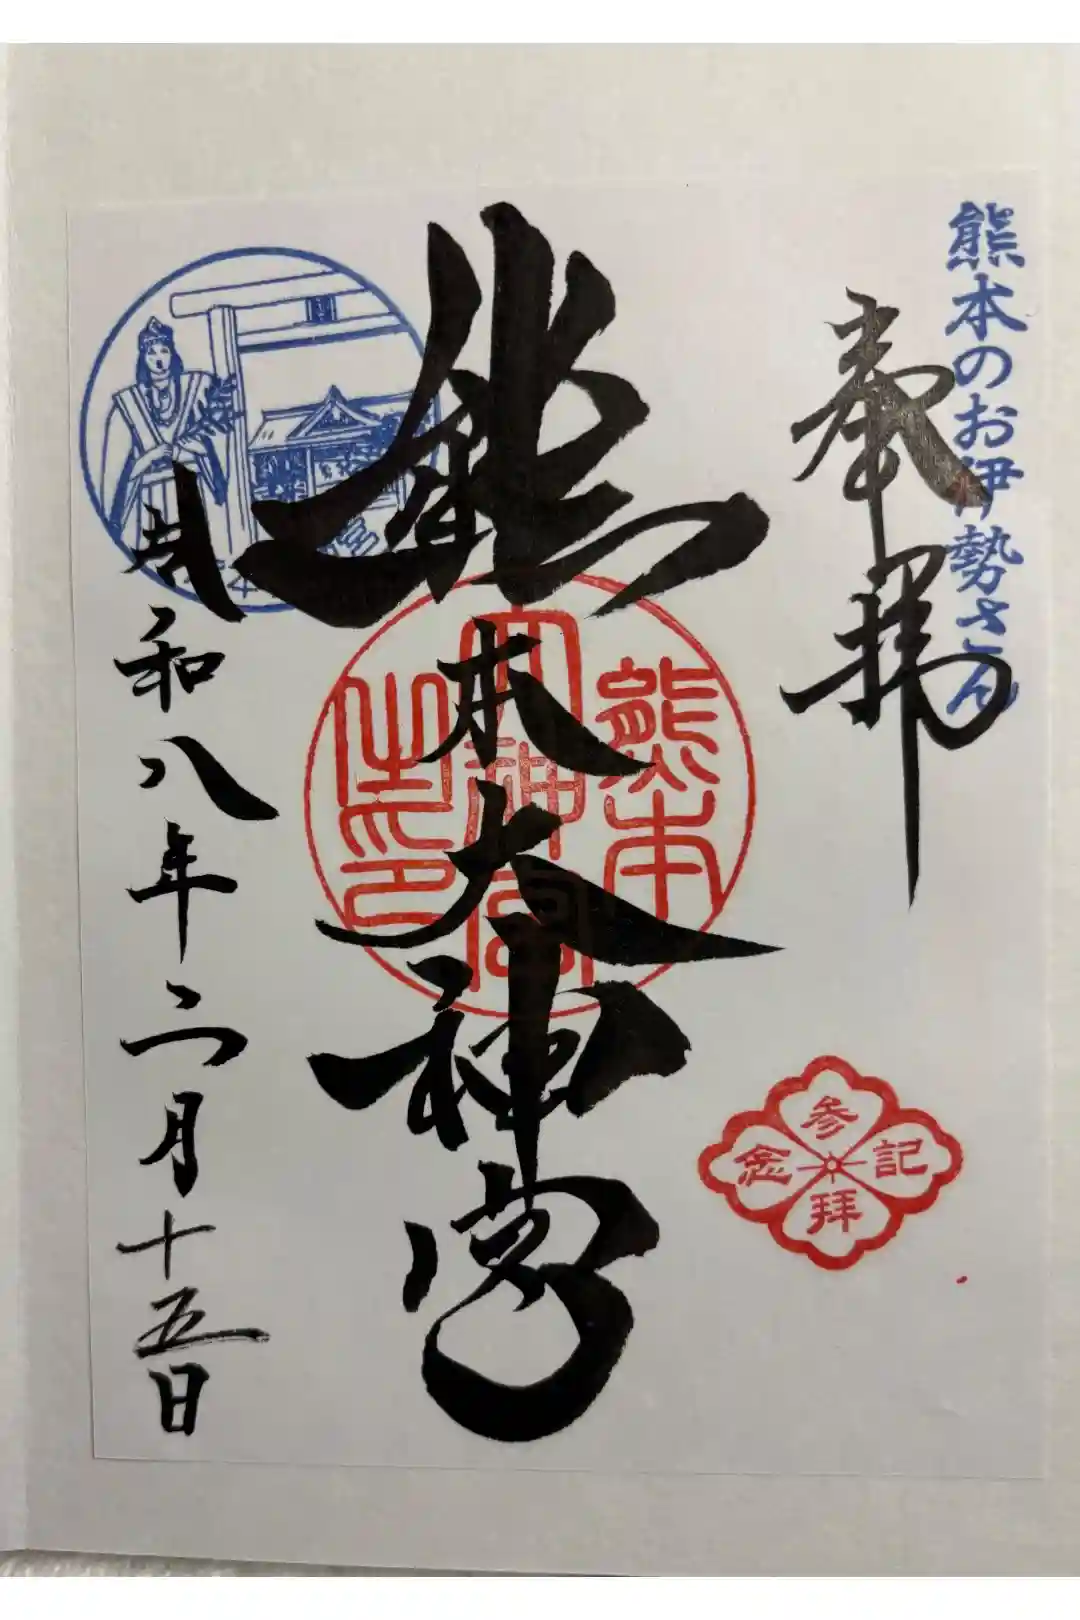 熊本のお伊勢さん
奉拝
熊本大神宮
熊本
大神宮
之印
参拝
記念
令和八年二月十五日